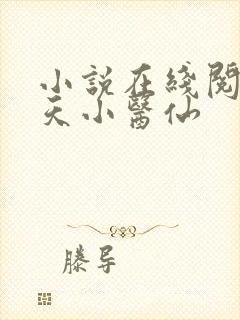 小說在綫閱
天小醫仙
滕导